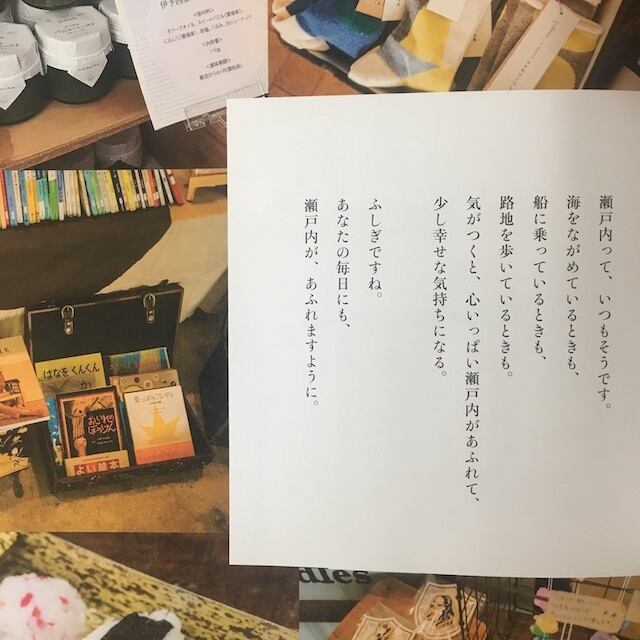 瀬戸内って、いつもそうです。
海をながめているときも、
船に乗っているときも、
路地を歩いているときも。
気がつくと、心いっぱい瀬戸内があふれて、
少し幸せな気持ちになる。
ふしぎですね。
あなたの毎日にも、
瀬戸内が、あふれますように。
はなをくんくん
おしいれのぼうけん
葉っぱのフレディ
よい絵本
<内容量>
110g
<賞味期限>
dles